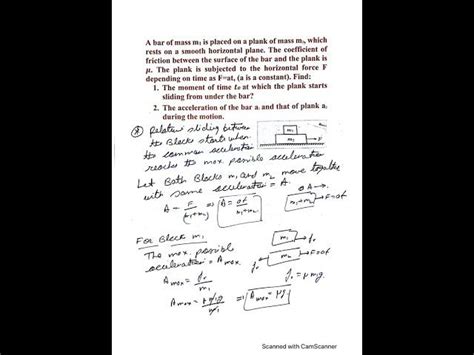 A bar of mass m₁ is placed on a plank of mass m₂, which
rests on a smooth horizontal plane. The coefficient of
friction between the surface of the bar and the plank is
μ. The plank is subjected to the horizontal force F
depending on time as F=at, (a is a constant). Find:
1. The moment of time t₀ at which the plank starts
sliding from under the bar?
2. The acceleration of the bar a₁ and that of plank a₂
during the motion.
Relative sliding between
the Blocks starts when
the common acceleration
reaches the max. possible acceleration
m₁
m₂ → F
Let Both Blocks m₁ and m₂ move together
with same acceleration = A.
A = F/(m₁+m₂) ⇒ A = at/(m₁+m₂)
A →
m₁+m₂ → F=at
For Block m₁
The max. possible
acceleration = Amax
m₁ → fr
fr ← m₂ → F=at
Amax = fr/m₁
fr = μm₁g
Amax = μm₁g/m₁ ⇒ Amax = μg
Scanned with CamScanner